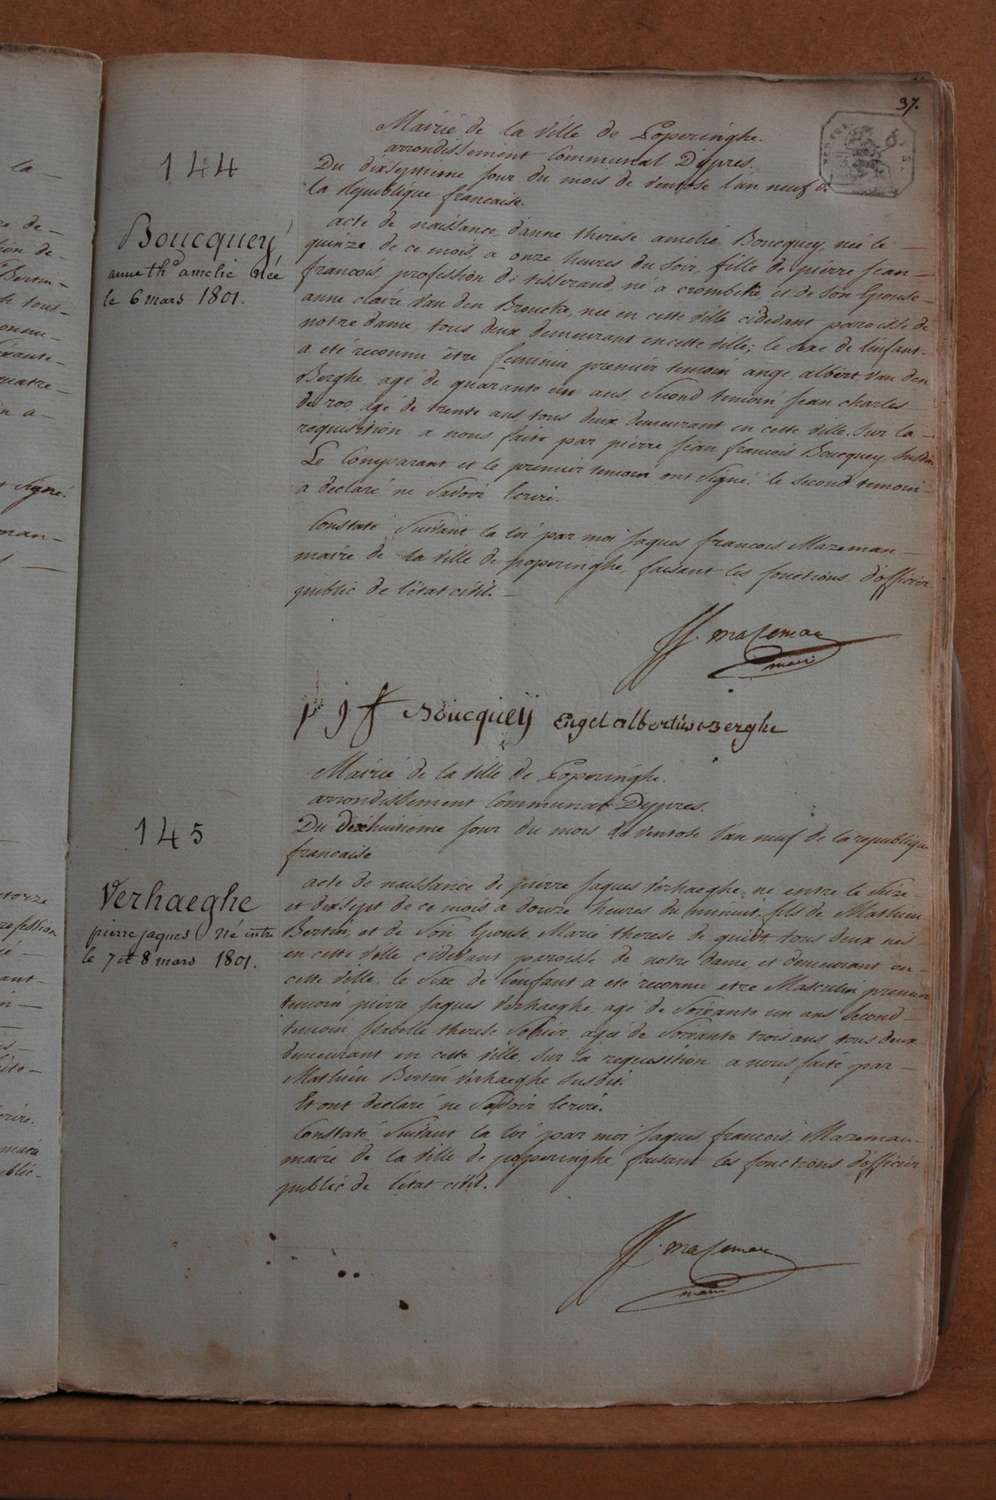 37.
144
Boucquey
anne th^e amelie née
le 6 mars 1801.
Mairie de la ville de Poperinghe.
arrondissement Communal D'ypres.
Du dixseptieme jour du mois de ventose l'an neuf de
la republique francaise.
acte de naissance d'anne therése amelie Boucquey, née le
quinze de ce mois, a onze heures du soir, fille de pierre jean
francois, profession de tisserand, né a crombeke, et de son Epouse
anne claire Van den Broucke, née en cette ville cidevant paroisse de
notre dame, tous deux demeurant en cette ville; le sexe de l'enfant
a eté reconnu être feminin premier temoin ange albert Van den
Berghe, agé de quarante un ans, second temoin jean charles
de roo, agé de trente ans tous deux demeurant en cette ville. sur la
requisition a nous faite par pierre jean francois Boucquey susdit.
Le Comparant et le premier temoin ont signé: le second temoin
a declaré ne savoir Ecrire.
Constaté suivant la loi par moi jaques francois Mazeman
maire de la ville de poperinghe, faisant les fonctions d'officier
public de l'état civil.
JF. mazeman
maire
p^r j f Boucqueÿ Engel albertus Berghe
145
Verhaeghe
pierre jaques né entre
le 7 et 8 mars 1801.
Mairie de la ville de Poperinghe.
arrondissement Communal D'ypres.
Du dixhuitieme jour du mois de ventose l'an neuf de la republique
francaise
acte de naissance de pierre jaques verhaeghe, né entre le seize
et dixsept de ce mois a douze heures du minuit, fils de Mathieu
Bertin, et de son Epouse Marie therese de quidt tous deux nés
en cette ville cidevant paroisse de notre dame, et demeurant en
cette ville, le sexe de l'enfant a été reconnu etre Masculin premier
temoin pierre jaques Verhaeghe, agé de soixante un ans second
temoin Isabelle therese agée de soixante trois ans tous deux
demeurant en cette ville, sur la requisition a nous faite par
Mathieu Bertin verhaeghe susdit.
Et ont declaré ne savoir Ecrire.
Constaté suivant la loi par moi jaques francois Mazeman
maire de la ville de poperinghe faisant les fonctions d'officier
public de l'état civil.
JF. mazeman
maire